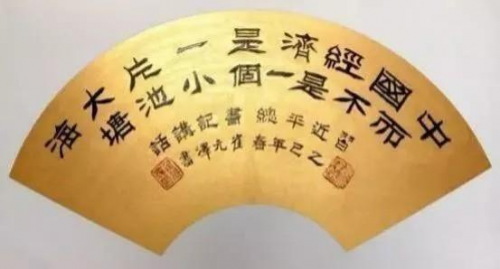 中國經濟是一片大海
而不是一個小池塘
習近平總書記講話
乙巳年春崔澤書